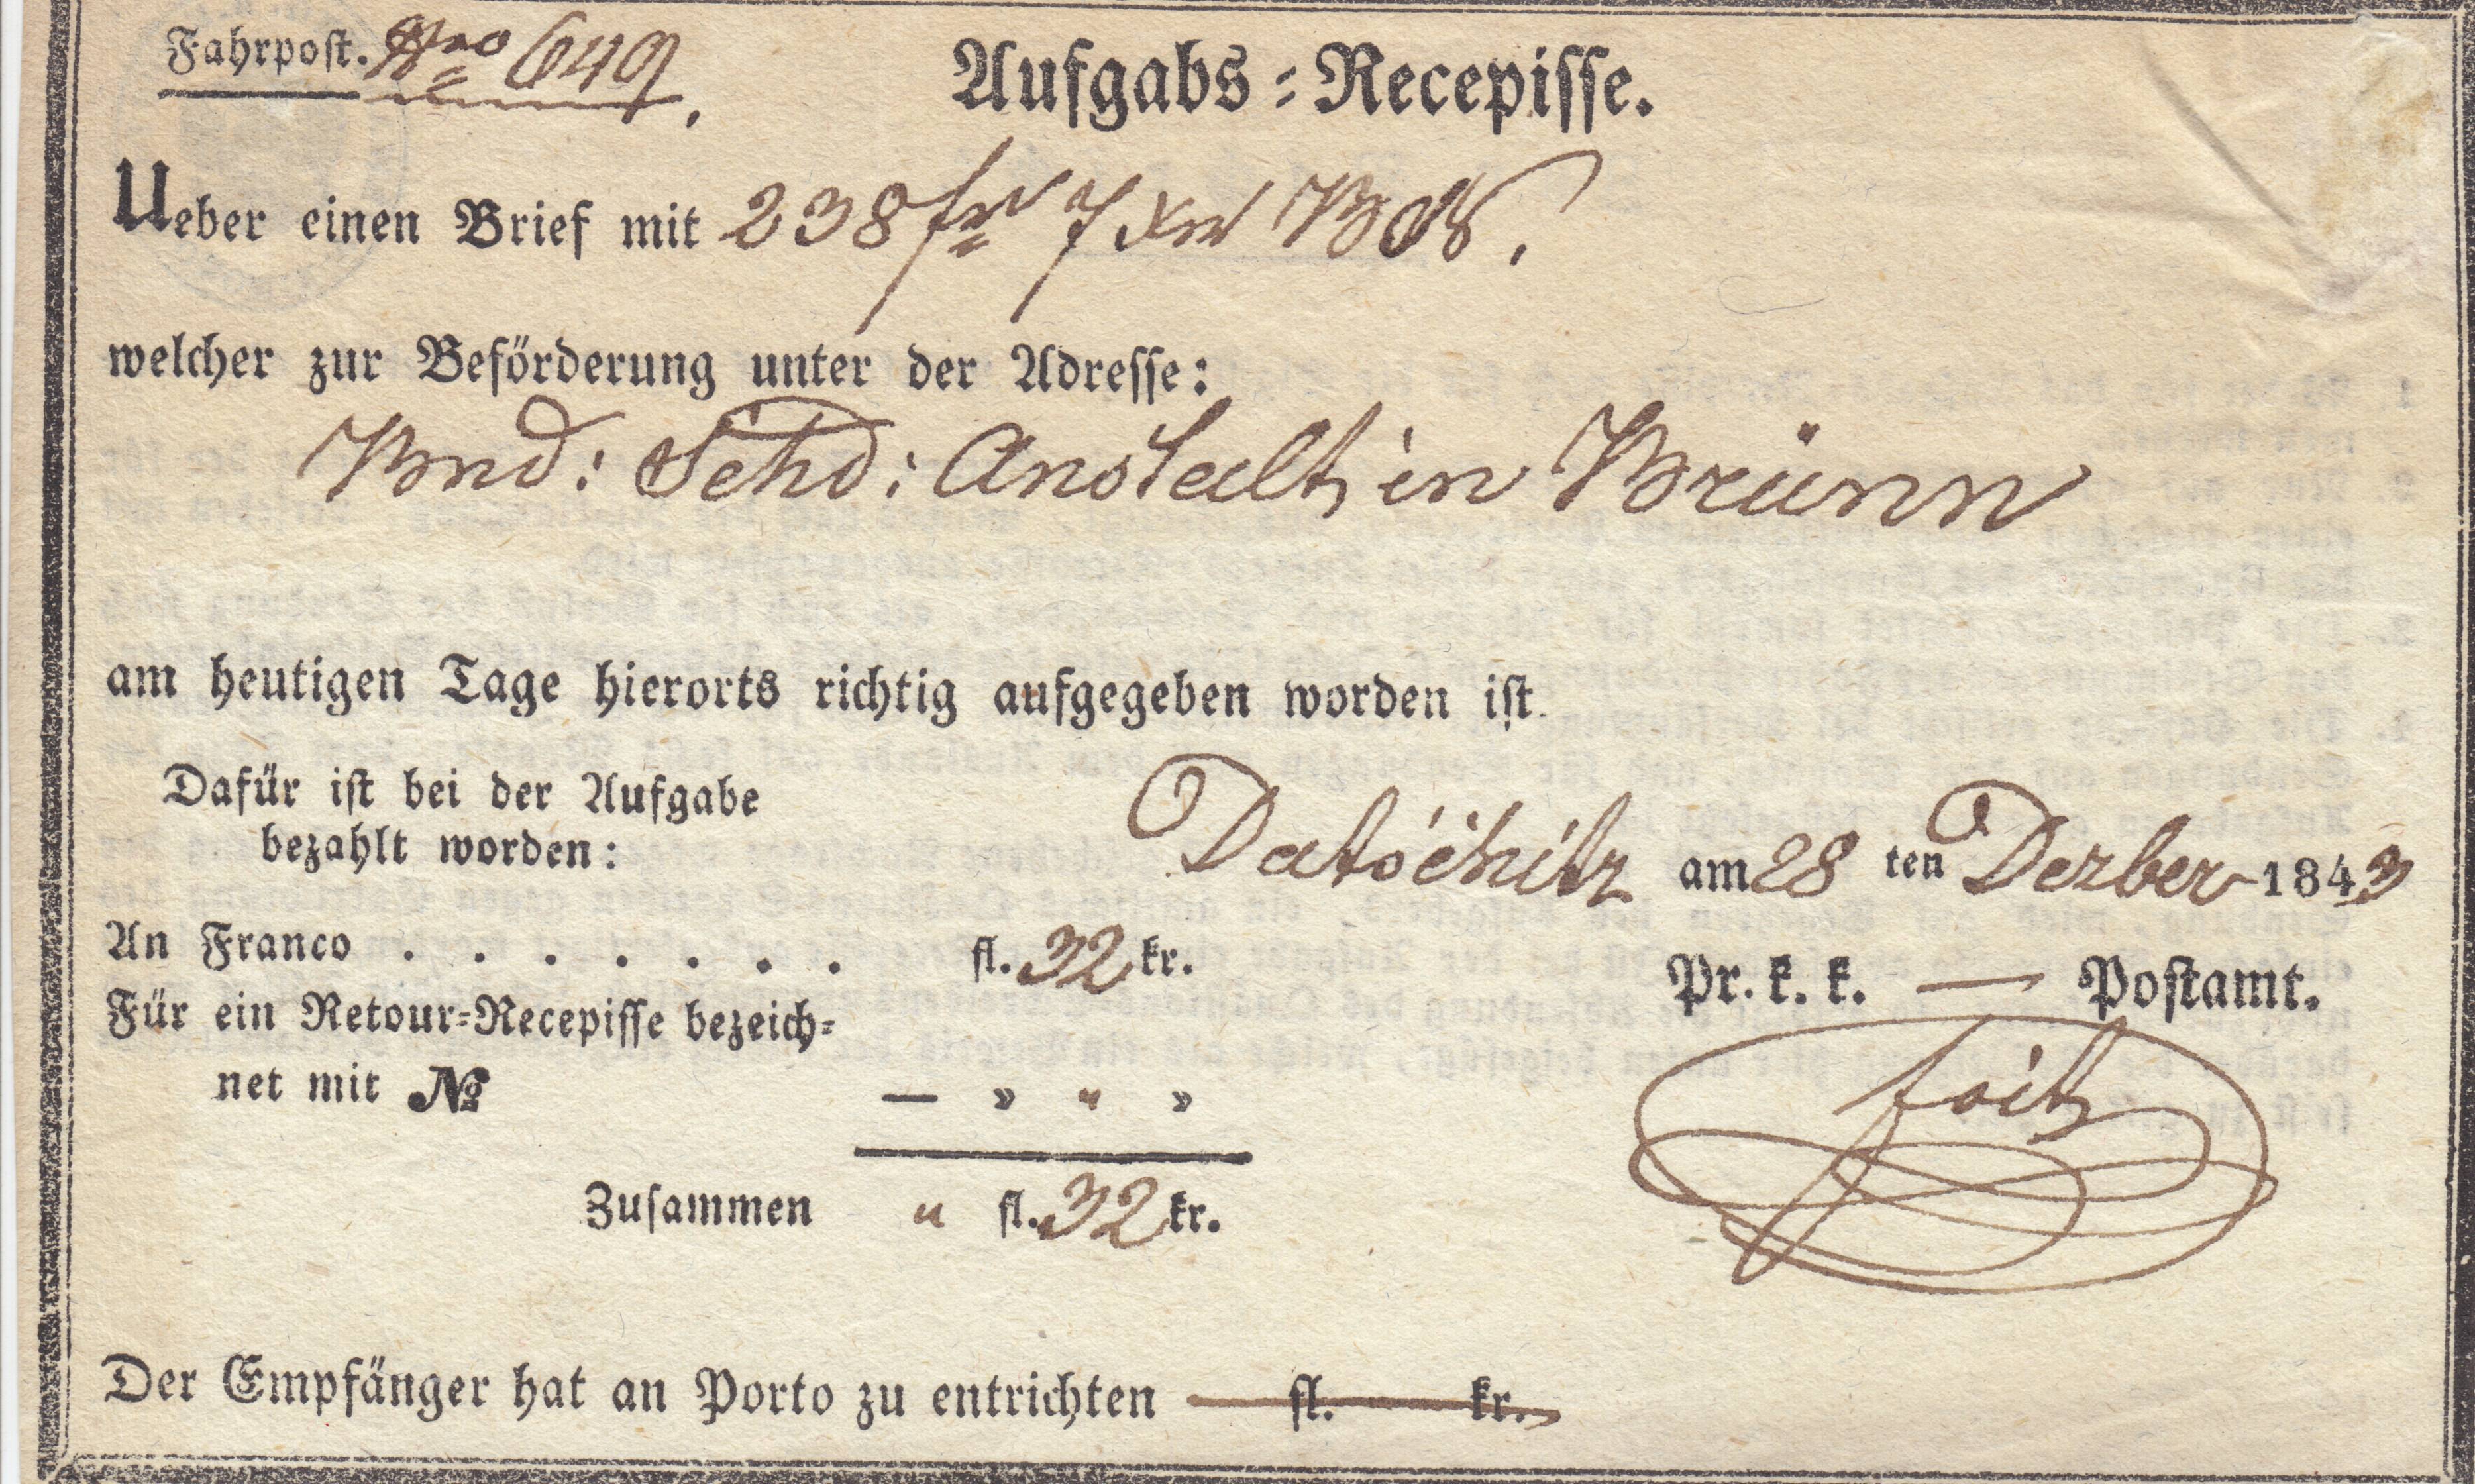 Fahrpost. Nro 649.
Aufgabs-Recepisse.
Ueber einen Brief mit 238 fr 7 xr
welcher zur Beförderung unter der Adresse:
Brnd: Schd: Anstalt in Brünn
am heutigen Tage hierorts richtig aufgegeben worden ist.
Dafür ist bei der Aufgabe
bezahlt worden:
Datschitz am 28 ten Dezber 1843
An Franco . . . . . . . fl. 32 kr.
Pr. k. k. — Postamt.
Für ein Retour-Recepisse bezeich-
net mit No — » " »
Zusammen " fl. 32 kr.
Der Empfänger hat an Porto zu entrichten — fl. — kr.